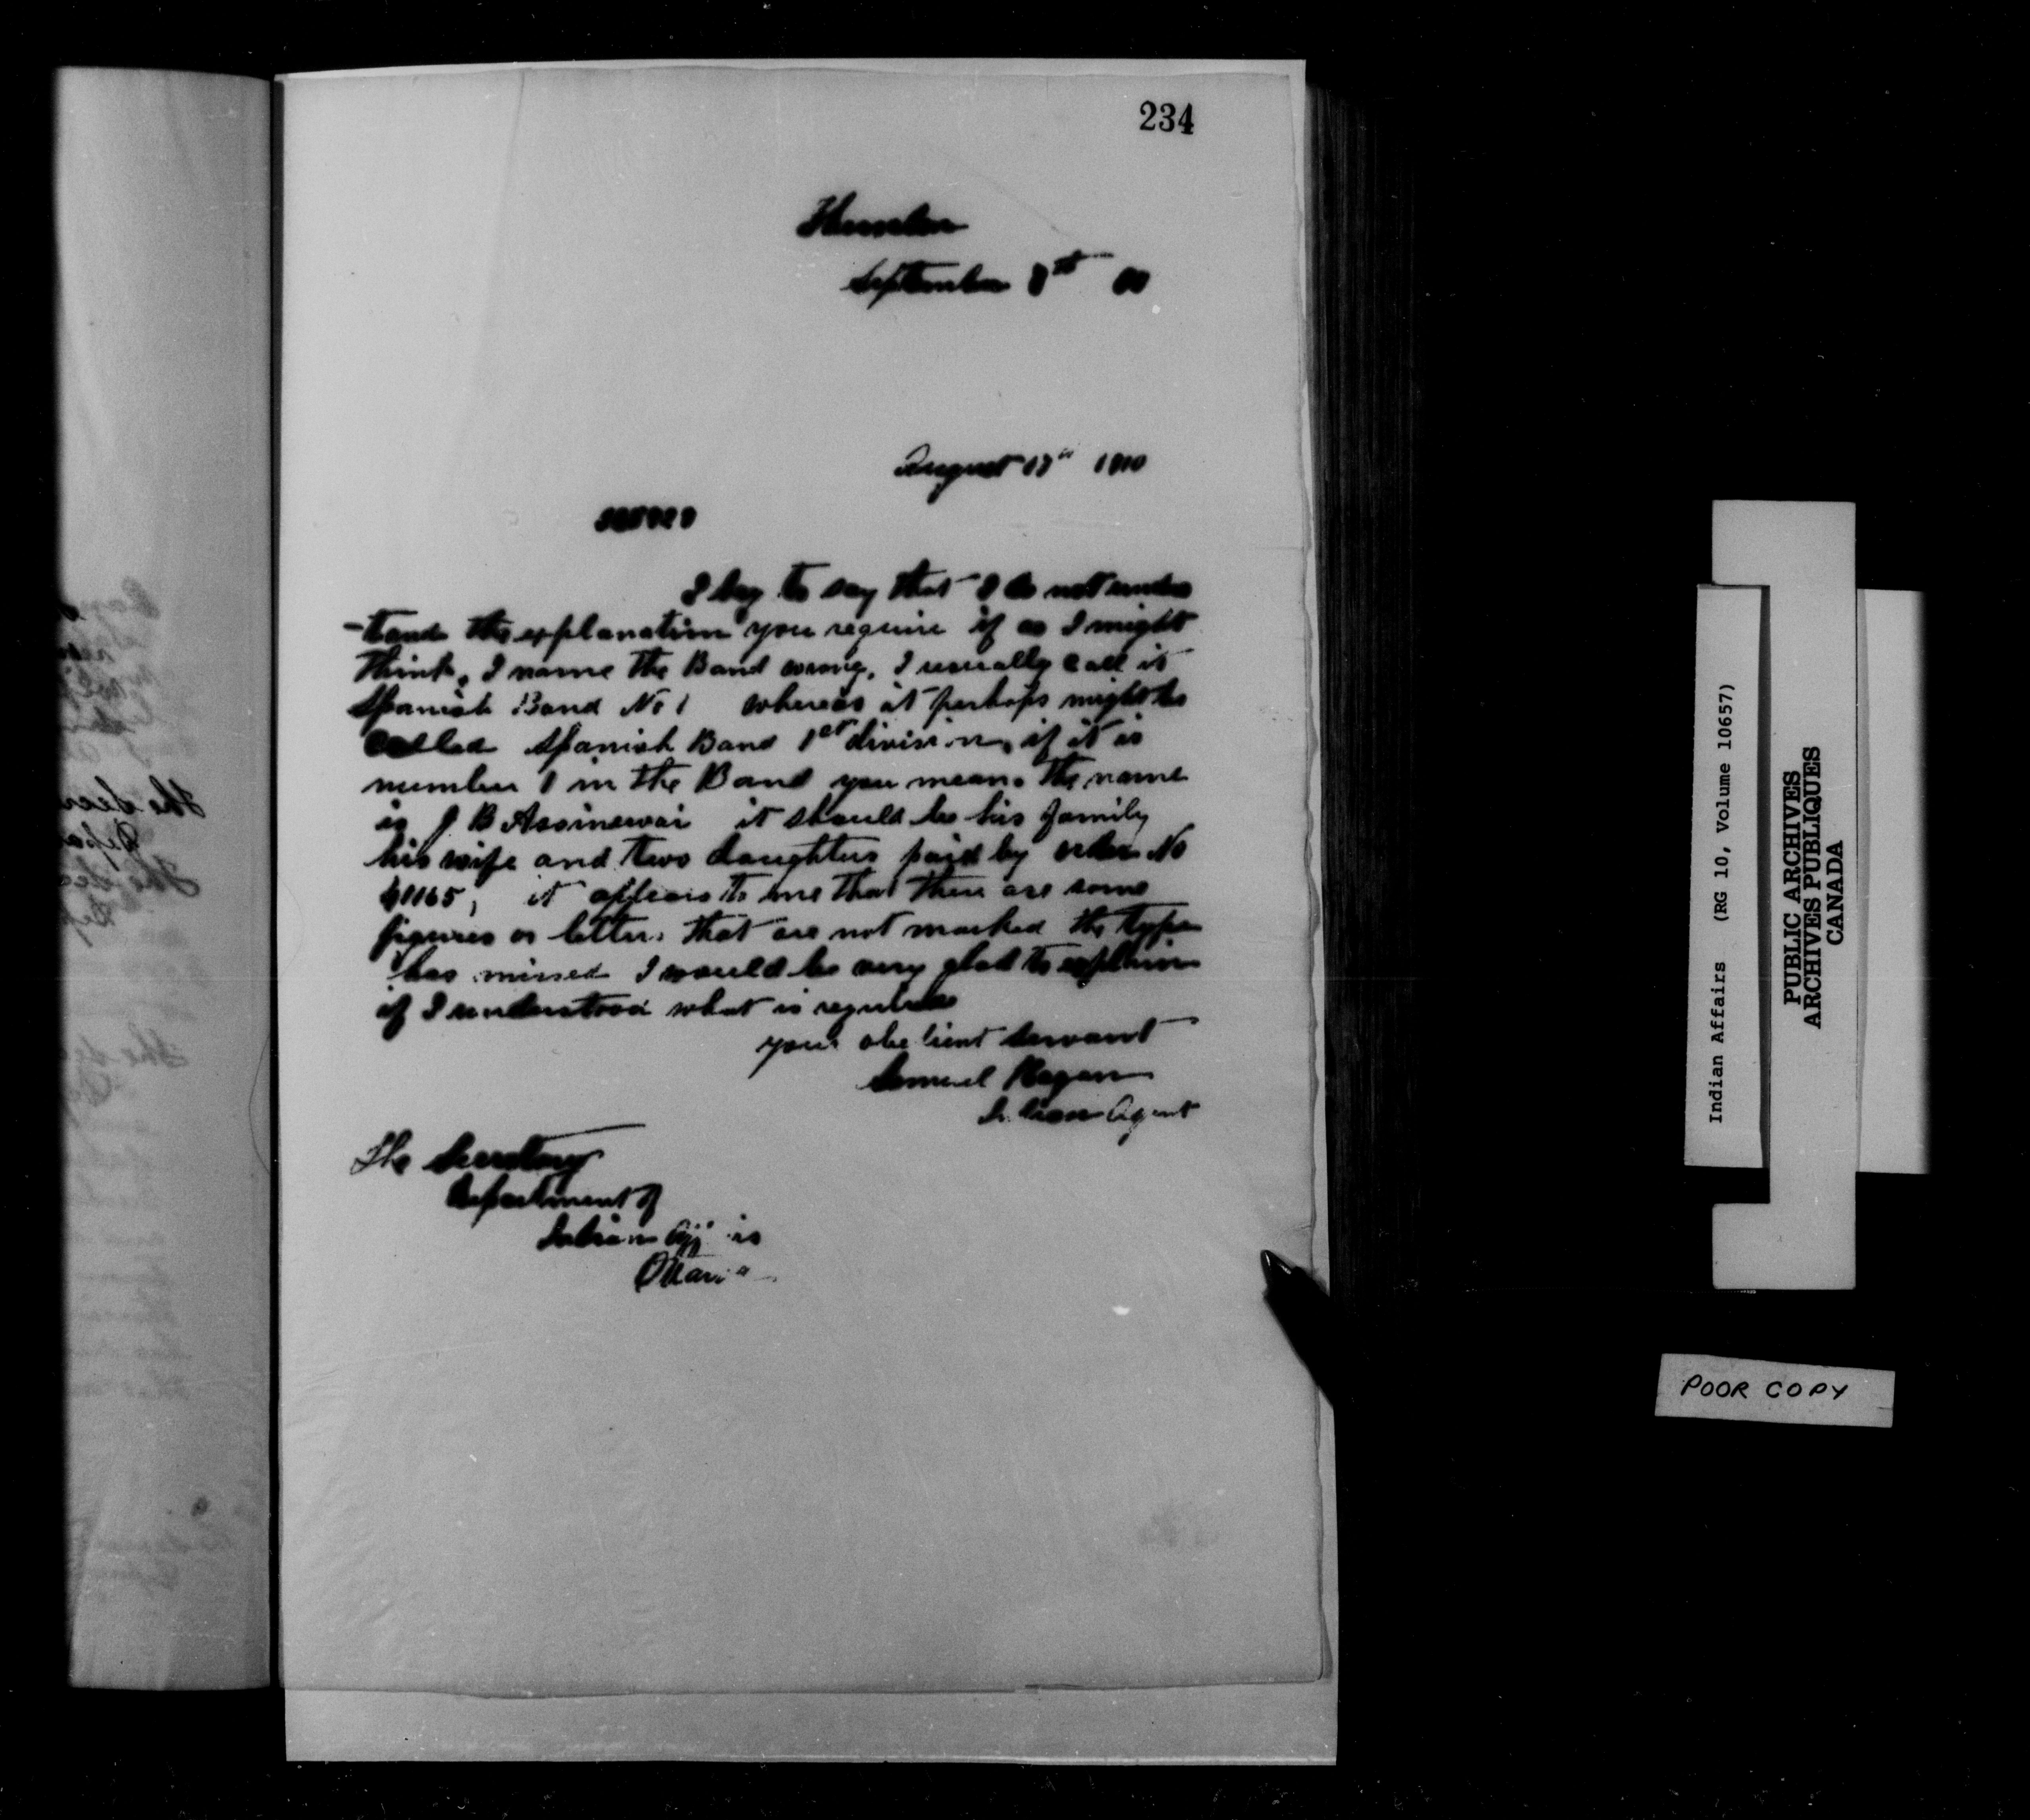 234
September 8th
August 1910
I beg to say that I do not unders
-tand the explanation you require if as I might
think, I name the Band wrong, I usually call it
Spanish Band No 1 whereas it perhaps might be
called Spanish Band 1st division, if it is
number 1 in the Band you mean. The name
is J B Assinewai it should be his family
his wife and two daughters paid by order No
61165, it appears to me that there are some
figures or letters that are not marked the type
has missed I would be very glad to explain
if I understood what is required
your obedient servant
Samuel Hagan
Indian Agent
The Secretary
Department of
Indian Affairs
Ottawa
Indian Affairs (RG 10, Volume 10657)
PUBLIC ARCHIVES
ARCHIVES PUBLIQUES
CANADA
POOR COPY